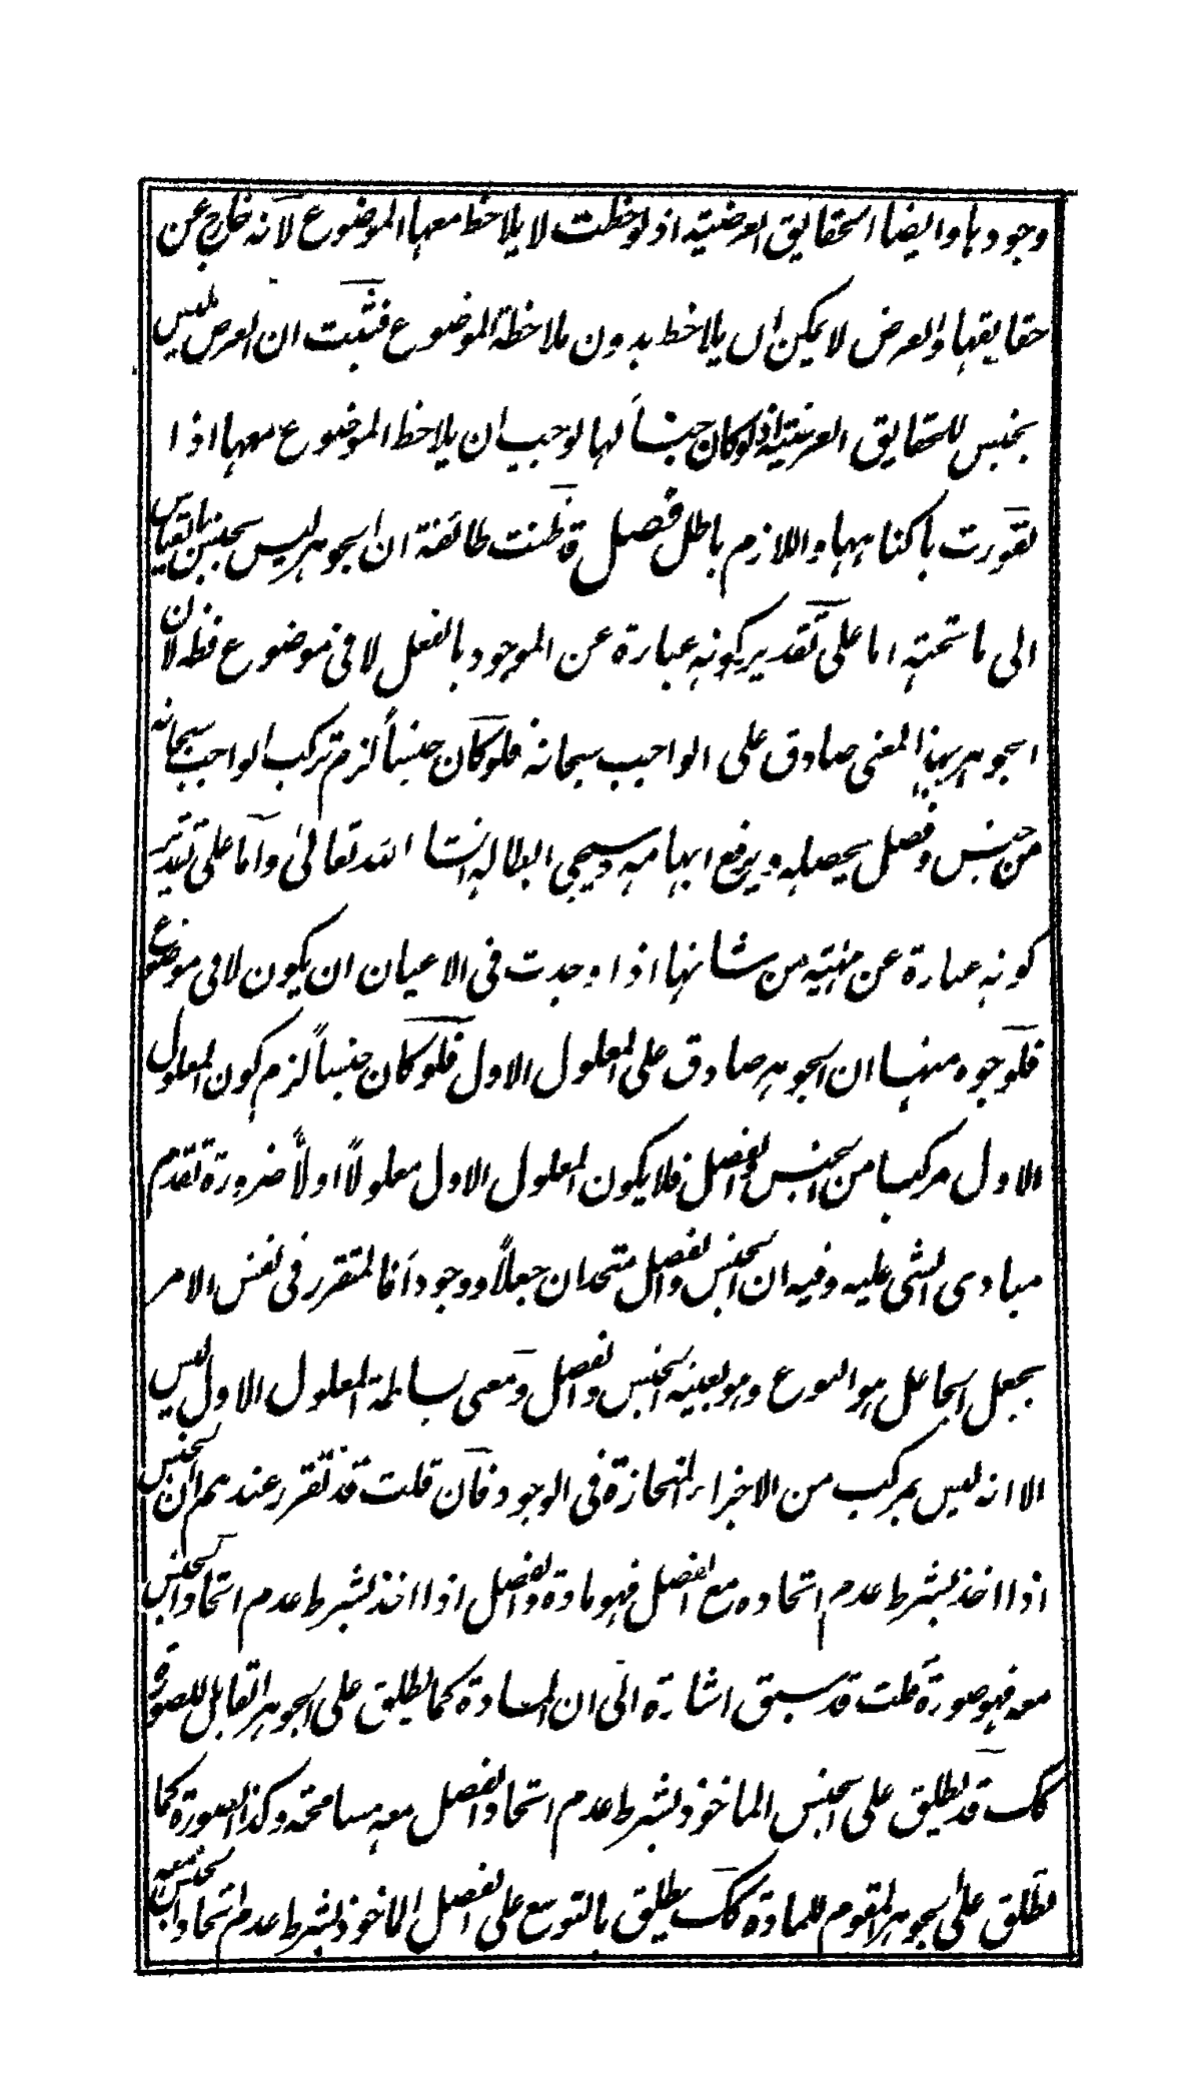 وجودها وايضا الحقايق العرضية اذ لوحظت لا يلاحظ معها الموضوع لانه خارج عن
حقايقها والعرض لا يمكن ان يلاحظ بدون ملاحظة الموضوع فثبت ان العرض ليس
بجنس للحقايق العرضية اذ لو كان جنساً لها لوجب ان يلاحظ الموضوع معها اذا
تصورت باكناهها واللازم باطل فصل قد ظنت طائفة ان الجوهر ليس بجنس بالقياس
الى ما تحته اما على تقدير كونه عبارة عن الموجود بالفعل لا فى موضوع فظ لان
الجوهر بهذا المعنى صادق على الواجب سبحانه فلو كان جنساً لزم تركب الواجب سبحانه
من جنس وفصل يحصله ويرفع ابهامه وسيجى ابطاله انشا الله تعالى واما على تقدير
كونه عبارة عن مهية من شانها اذا وجدت فى الاعيان ان يكون لا فى موضوع
فلوجوه منها ان الجوهر صادق على المعلول الاول فلو كان جنساً لزم كون المعلول
الاول مركبا من الجنس والفصل فلا يكون المعلول الاول معلولاً اولاً ضرورة تقدم
مبادى الشى عليه وفيه ان الجنس والفصل متحدان جعلاً ووجوداً فالمتقرر فى نفس الامر
بجعل الجاعل هو النوع وهو بعينه الجنس والفصل ومعنى بساطة المعلول الاول ليس
الا انه ليس بمركب من الاجزاء المنحازة فى الوجود فان قلت قد تقرر عندهم ان الجنس
اذا اخذ بشرط عدم اتحاده مع الفصل فهو مادة والفصل اذا اخذ بشرط عدم اتحاد الجنس
معه فهو صورة قلت قد سبق اشارة الى ان المادة كما يطلق على الجوهر القابل للصورة
كك قد يطلق على الجنس الماخوذ بشرط عدم اتحاد الفصل معه مسامحة وكذا الصورة كما
تطلق على الجوهر المقوم للمادة كك يطلق بالتوسع على الفصل الماخوذ بشرط عدم اتحاد الجنس معه